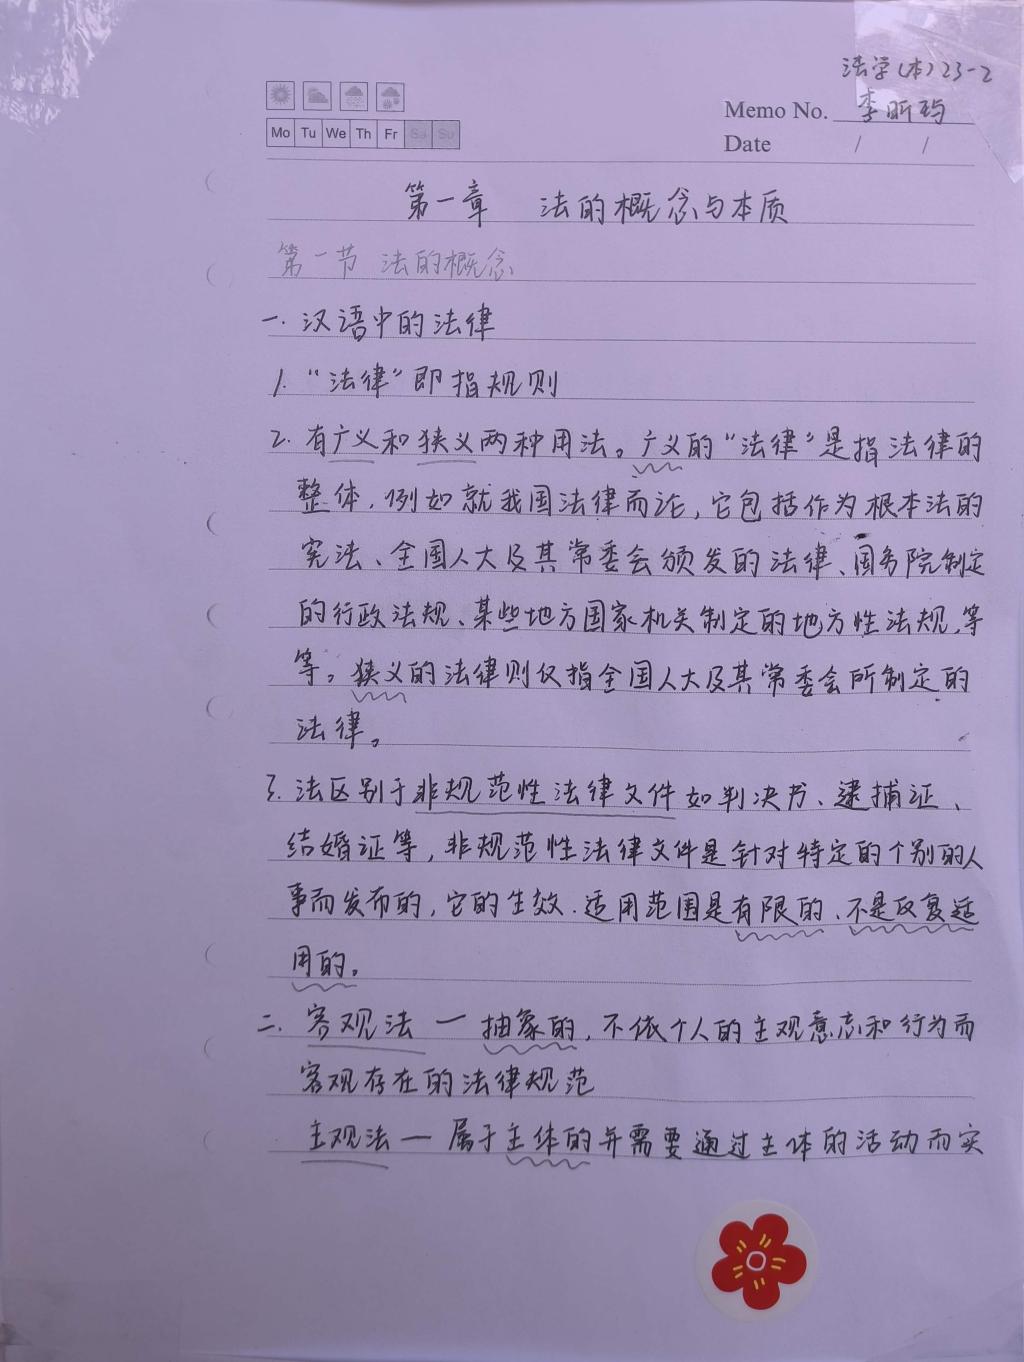 法学(本)23-2
Memo No. 李昕玙
Mo Tu We Th Fr Sa Su
Date / /
第一章 法的概念与本质
第一节 法的概念
一. 汉语中的法律
1. "法律"即指规则
2. 有广义和狭义两种用法。广义的"法律"是指法律的
整体，例如就我国法律而论，它包括作为根本法的
宪法、全国人大及其常委会颁发的法律、国务院制定
的行政法规、某些地方国家机关制定的地方性法规，等
等。狭义的法律则仅指全国人大及其常委会所制定的
法律。
3. 法区别于非规范性法律文件如判决书、逮捕证、
结婚证等，非规范性法律文件是针对特定的个别的人
事而发布的，它的生效.适用范围是有限的、不是反复适
用的。
二. 客观法 — 抽象的，不依个人的主观意志和行为而
客观存在的法律规范
主观法 — 属于主体的并需要通过主体的活动而实